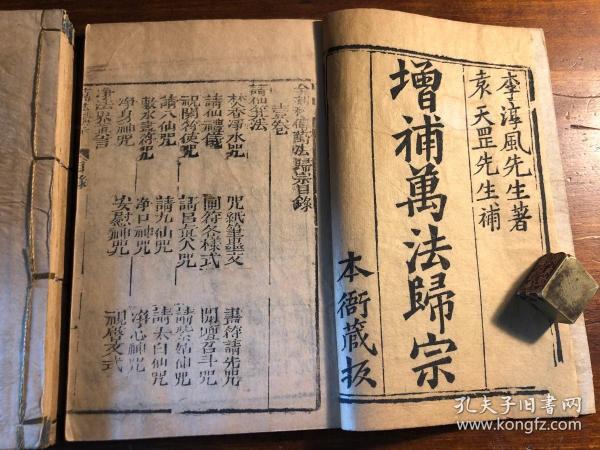 李淳風先生著
袁天罡先生補
增補萬法歸宗
本衙藏板
法歸宗目錄
壹卷
請仙箕法
焚香淨水咒 咒紙筆墨文 書符請先咒
請仙禮儀 開符各樣式 開壇召斗咒
視關符使咒 請呂真人咒 請紫姑仙咒
請八仙咒 請九仙咒 請太白仙咒
敕水雲符咒 淨口神咒 淨心神咒
淨身神咒 安慰神咒
淨法界真言
目錄
孔夫子旧书网
www.kongfz.com